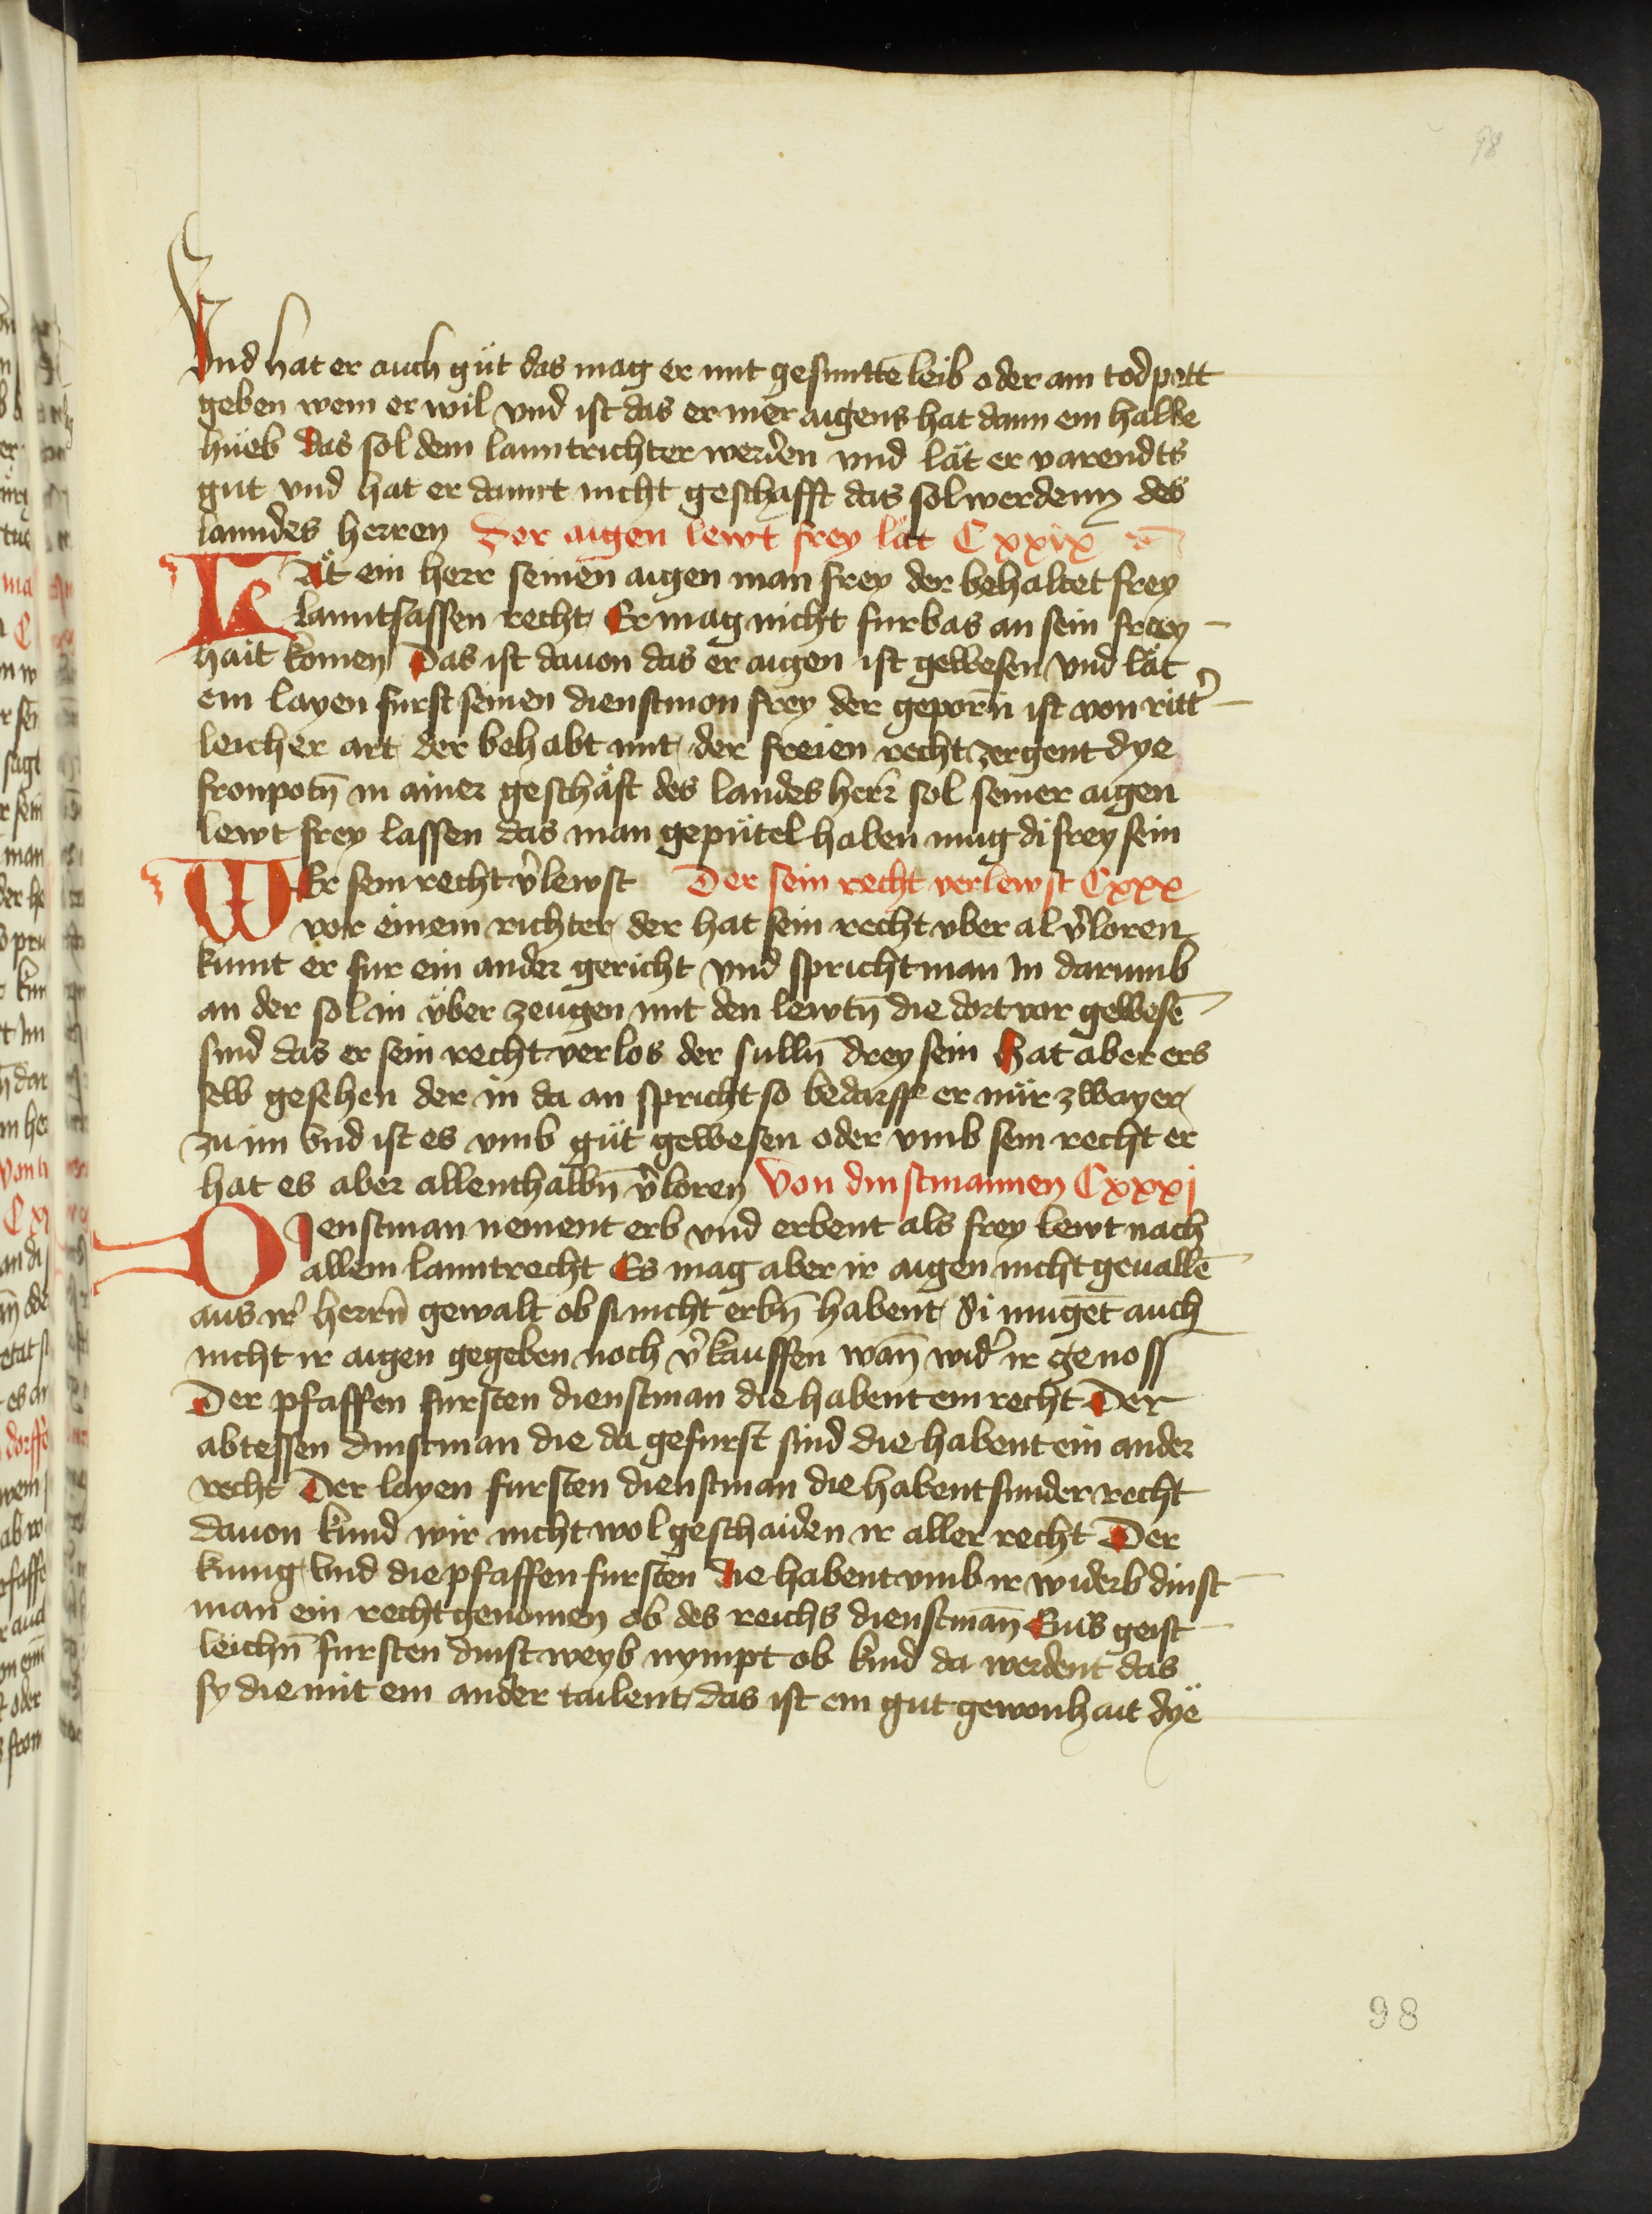 98
Vnd hat er auch güt das mag er mit gesuntte leib oder am todpett
geben wem er wil vnd ist das er mer aigens hat dann ein halbe
hueb das sol dem lanntrichter werden vnd lät er varendts
gut vnd hat er damit nicht geschafft das sol werdenn des
lanndes herren Der aigen lewt frey lät Cxxix
LÄt ein herr seinen aigen man frey der behaltet frey
lanntsassen recht Er mag nicht furbas an sein frey
hait komen Das ist dauon das er aigen ist gewesen Vnd lät
ein layen furst seinen dienstmon frey der geporn̄ ist von ritt̕
leicher art der behabt mit der freien recht zergent dye
fronpotn̄ in ainer geschäft des landes herr sol seiner aigen
lewt frey lassen das man gepütel haben mug di frey sein
WEr sein recht v̕lewst Der sein recht verlewst Cxxx
vor einem richter der hat sein recht vber al v̕loren
kumt er fur ein ander gericht vnd spricht man in darumb
an der sol in über zeugen mit den lewtn̄ die dort vor gewesē
sind das er sein recht verlos der sulln̄ drey sein Hat aber ers
selb gesehen der in da an spricht so bedarff er nür zwayer
zu im Vnd ist es vmb güt gewesen oder vmb sein recht er
hat es aber allenthalbn̄ v̕loren Von dinstmannen Cxxxj
DIenstman nement erb vnd erbent als frey lewt nach
allem lanntrecht Es mag aber ir aigen nicht geuallē
aus ir̕ herrn̄ gewalt ob si nicht erbn̄ habent Si mugēt auch
nicht ir aigen gegeben noch v̕kauffen wan̄ wid̕ ir genoss
Der pfaffen fursten dienstman die habent ein recht Der
abtessen dinstman die da gefurst sind die habent ein ander
recht Der layen fursten dienstman die habent sunder recht
dauon kund wir nicht wol geschaiden ir aller recht Der
kunig Vnd die pfaffen fursten die habent vmb ir widerb dinst
man ein recht genomen ob des reichs dienstman̄ Eins geist
leichn̄ fursten dinst weyb nympt ob kind da werdent das
sy die mit ein ander tailent das ist ein gut gewonhait dÿe
98